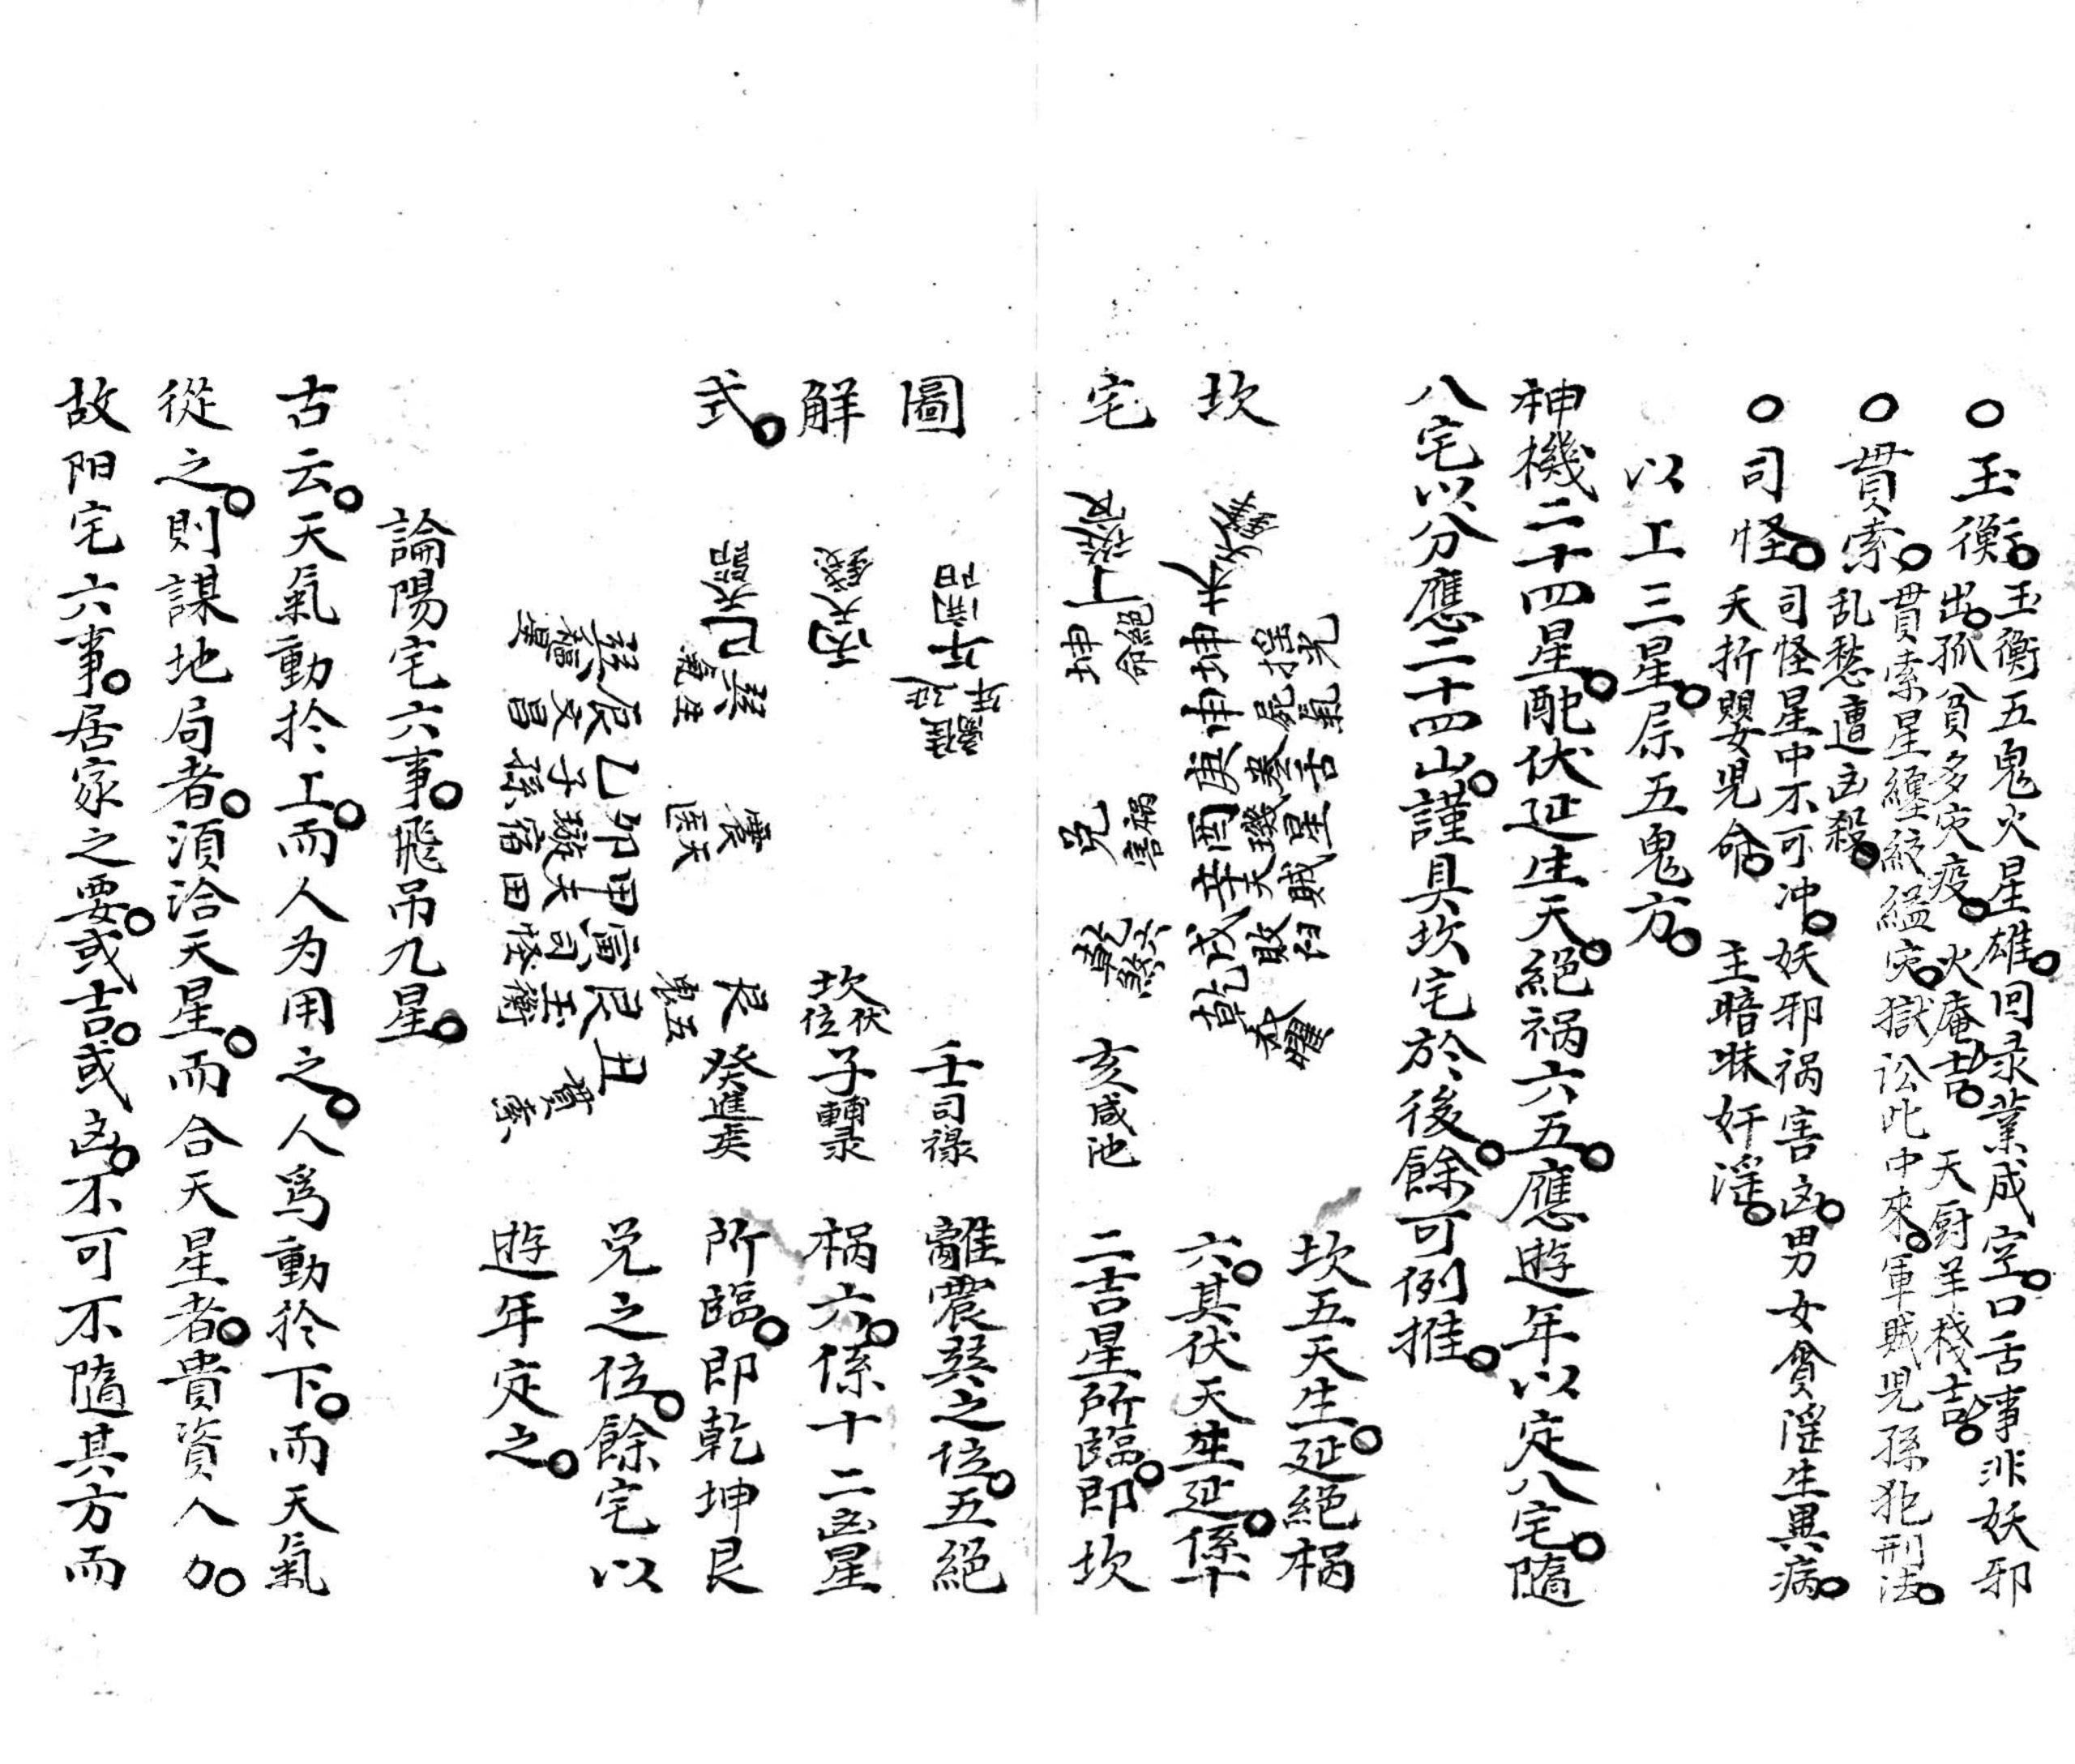 ○玉衡。玉衡五鬼火星雄。回录業成空。口舌事非妖邪
出。孤貧多灾疫。火庵吉。天厨羊栈吉。
○貫索。貫索星纏絞縊灾。獄訟此中來。軍賊児孫犯刑法。
乱愁遭凶殺。
○司怪。司怪星中不可冲。妖邪禍害凶。男女貪淫生異病。
夭折嬰児命。主暗昧奸淫。
以上三星。屬五鬼方。
神機二十四星。配伏延生天。絕禍六五。應遊年以定八宅。隨
八宅以分應二十四山。謹具坎宅於後。餘可例推。
坎宅圖解式。
坤絕命
兑禍害
乾六煞
亥咸池
坎伏位
壬司禄
子輔录
癸進爻
丑貫索
艮五鬼
艮玉衡
寅司怪
甲田宿
卯天璇
乙子孫
辰文昌
震天医
巽生氣
丙天錢
坎五天生。延絕禍
六。其伏天生延。係十
二吉星所臨。即坎
離震巽之位。五絕
禍六。係十二凶星
所臨。即乾坤艮
兑之位。餘宅以
遊年定之。
論陽宅六事。飛吊九星。
古云。天氣動於上。而人为用之。人爲動於下。而天氣
從之。則謀地局者。須洽天星。而合天星者。貴資人力。
故阳宅六事。居家之要。或吉。或凶。不可不隨其方而